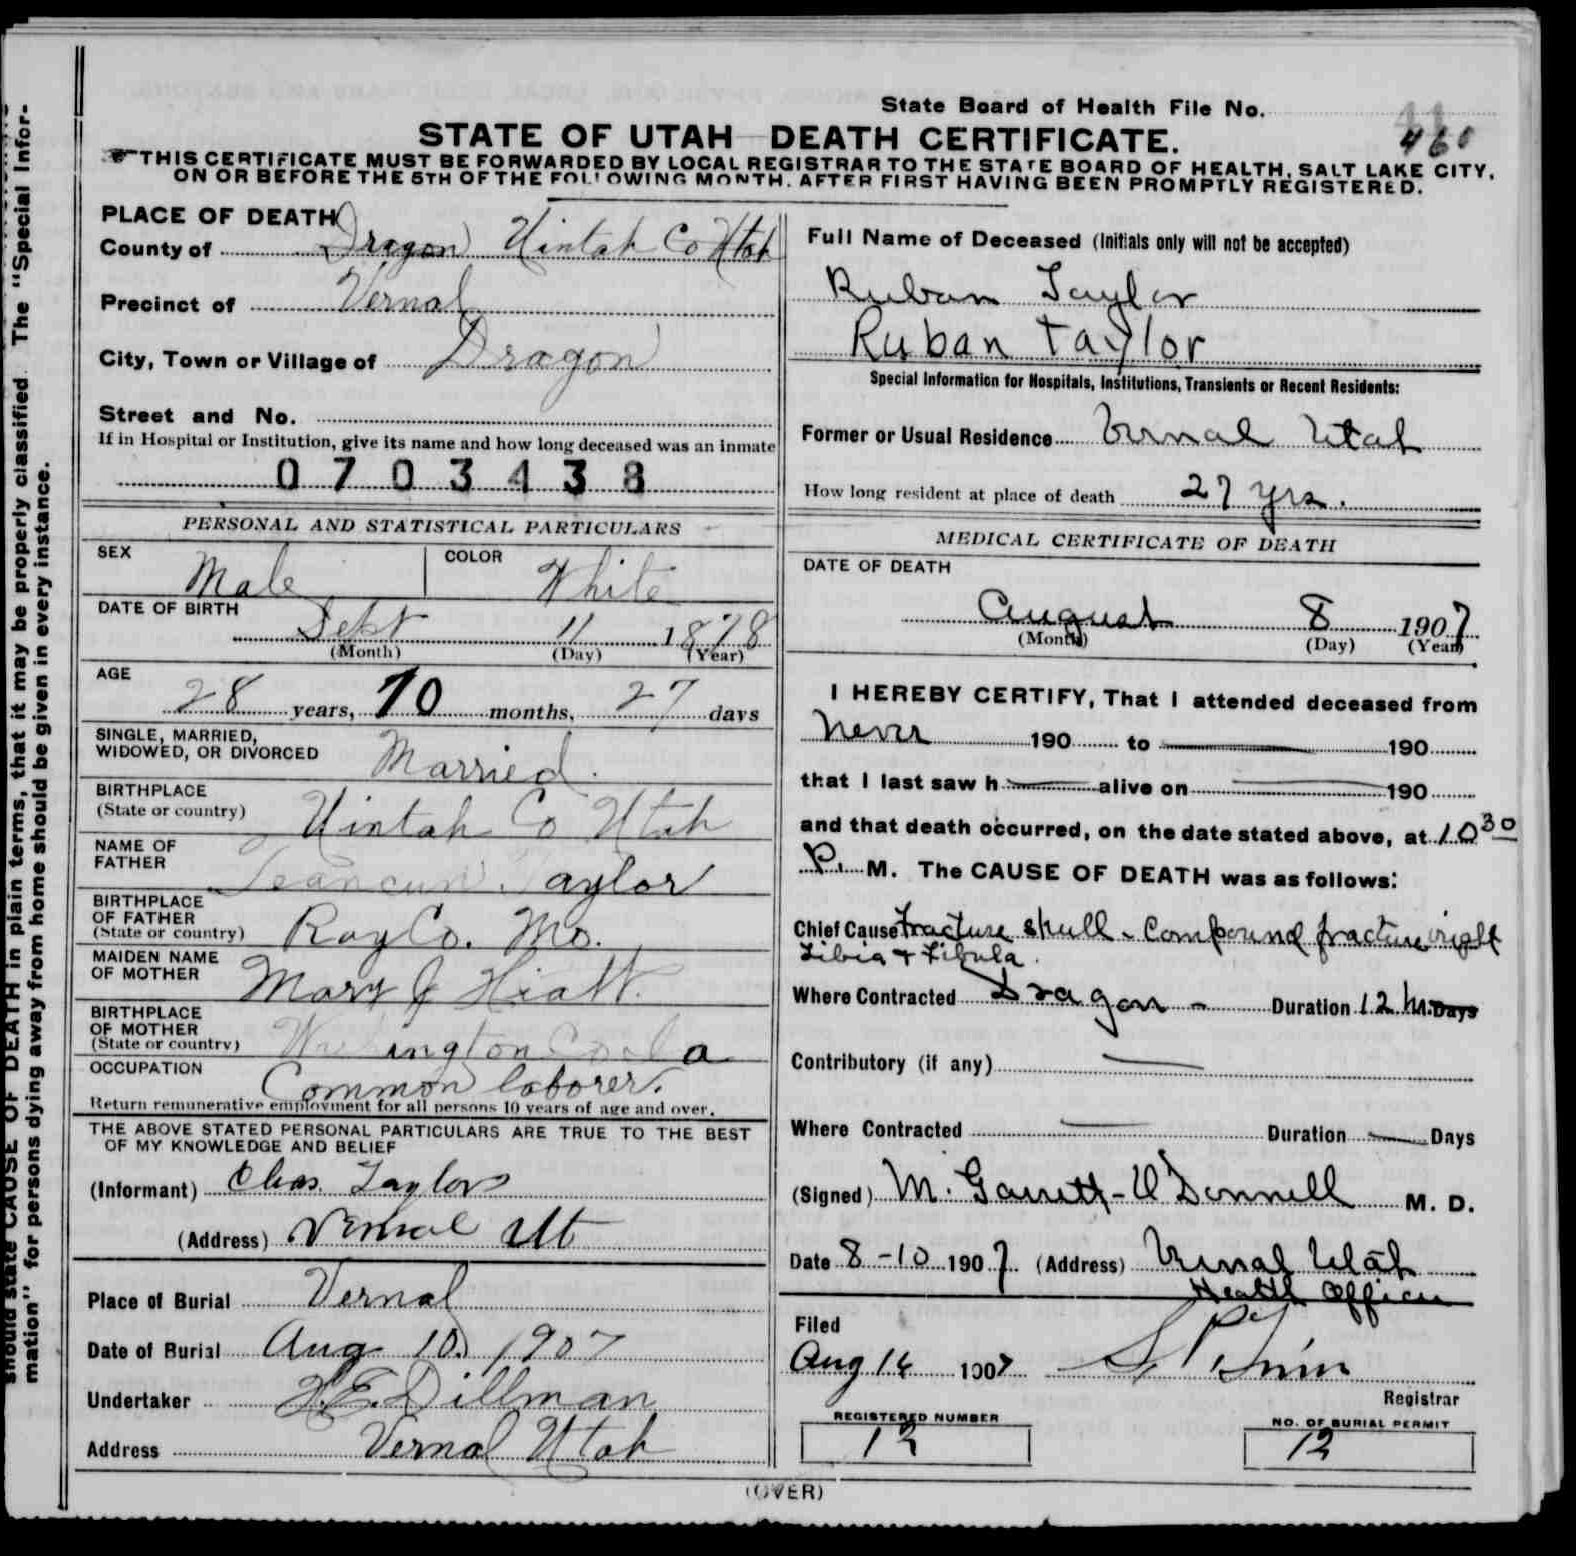 State Board of Health File No.
460
STATE OF UTAH DEATH CERTIFICATE.
THIS CERTIFICATE MUST BE FORWARDED BY LOCAL REGISTRAR TO THE STATE BOARD OF HEALTH, SALT LAKE CITY,
ON OR BEFORE THE 5TH OF THE FOLLOWING MONTH, AFTER FIRST HAVING BEEN PROMPTLY REGISTERED.
should state CAUSE OF DEATH in plain terms, that it may be properly classified. The "Special Infor-
mation" for persons dying away from home should be given in every instance.
PLACE OF DEATH
County of Dragon Uintah Co Utah
Precinct of Vernal
City, Town or Village of Dragon
Street and No.
If in Hospital or Institution, give its name and how long deceased was an inmate
0703438
PERSONAL AND STATISTICAL PARTICULARS
SEX Male COLOR White
DATE OF BIRTH Sept 11 1878
(Month) (Day) (Year)
AGE
28 years, 10 months, 27 days
SINGLE, MARRIED,
WIDOWED, OR DIVORCED Married.
BIRTHPLACE
(State or country) Uintah Co Utah
NAME OF
FATHER Taylor
BIRTHPLACE
OF FATHER
(State or country) Ray Co. Mo.
MAIDEN NAME
OF MOTHER Mary J Hiatt.
BIRTHPLACE
OF MOTHER
(State or country)
OCCUPATION Common laborer.
Return remunerative employment for all persons 10 years of age and over.
THE ABOVE STATED PERSONAL PARTICULARS ARE TRUE TO THE BEST
OF MY KNOWLEDGE AND BELIEF
(Informant) Chas. Taylor
(Address) Vernal Ut
Place of Burial Vernal
Date of Burial Aug 10. 1907
Undertaker Dillman
Address Vernal Utah
Full Name of Deceased (Initials only will not be accepted)
Ruban Taylor
Ruban Taylor
Special Information for Hospitals, Institutions, Transients or Recent Residents:
Former or Usual Residence Vernal Utah
How long resident at place of death 27 yrs.
MEDICAL CERTIFICATE OF DEATH
DATE OF DEATH
August 8 1907
(Month) (Day) (Year)
I HEREBY CERTIFY, That I attended deceased from
never 190 to 190
that I last saw h alive on 190
and that death occurred, on the date stated above, at 10 30
P. M. The CAUSE OF DEATH was as follows:
Chief Cause Fracture skull - Compound fracture right
Tibia & Fibula.
Where Contracted Dragon - Duration 12 hr. Days
Contributory (if any)
Where Contracted Duration Days
(Signed) M. Garrett - O'Donnell M. D.
Date 8-10 1907 (Address) Vernal Utah
Health Officer
Filed
Aug 14 1907
Registrar
REGISTERED NUMBER
12
NO. OF BURIAL PERMIT
12
(OVER)